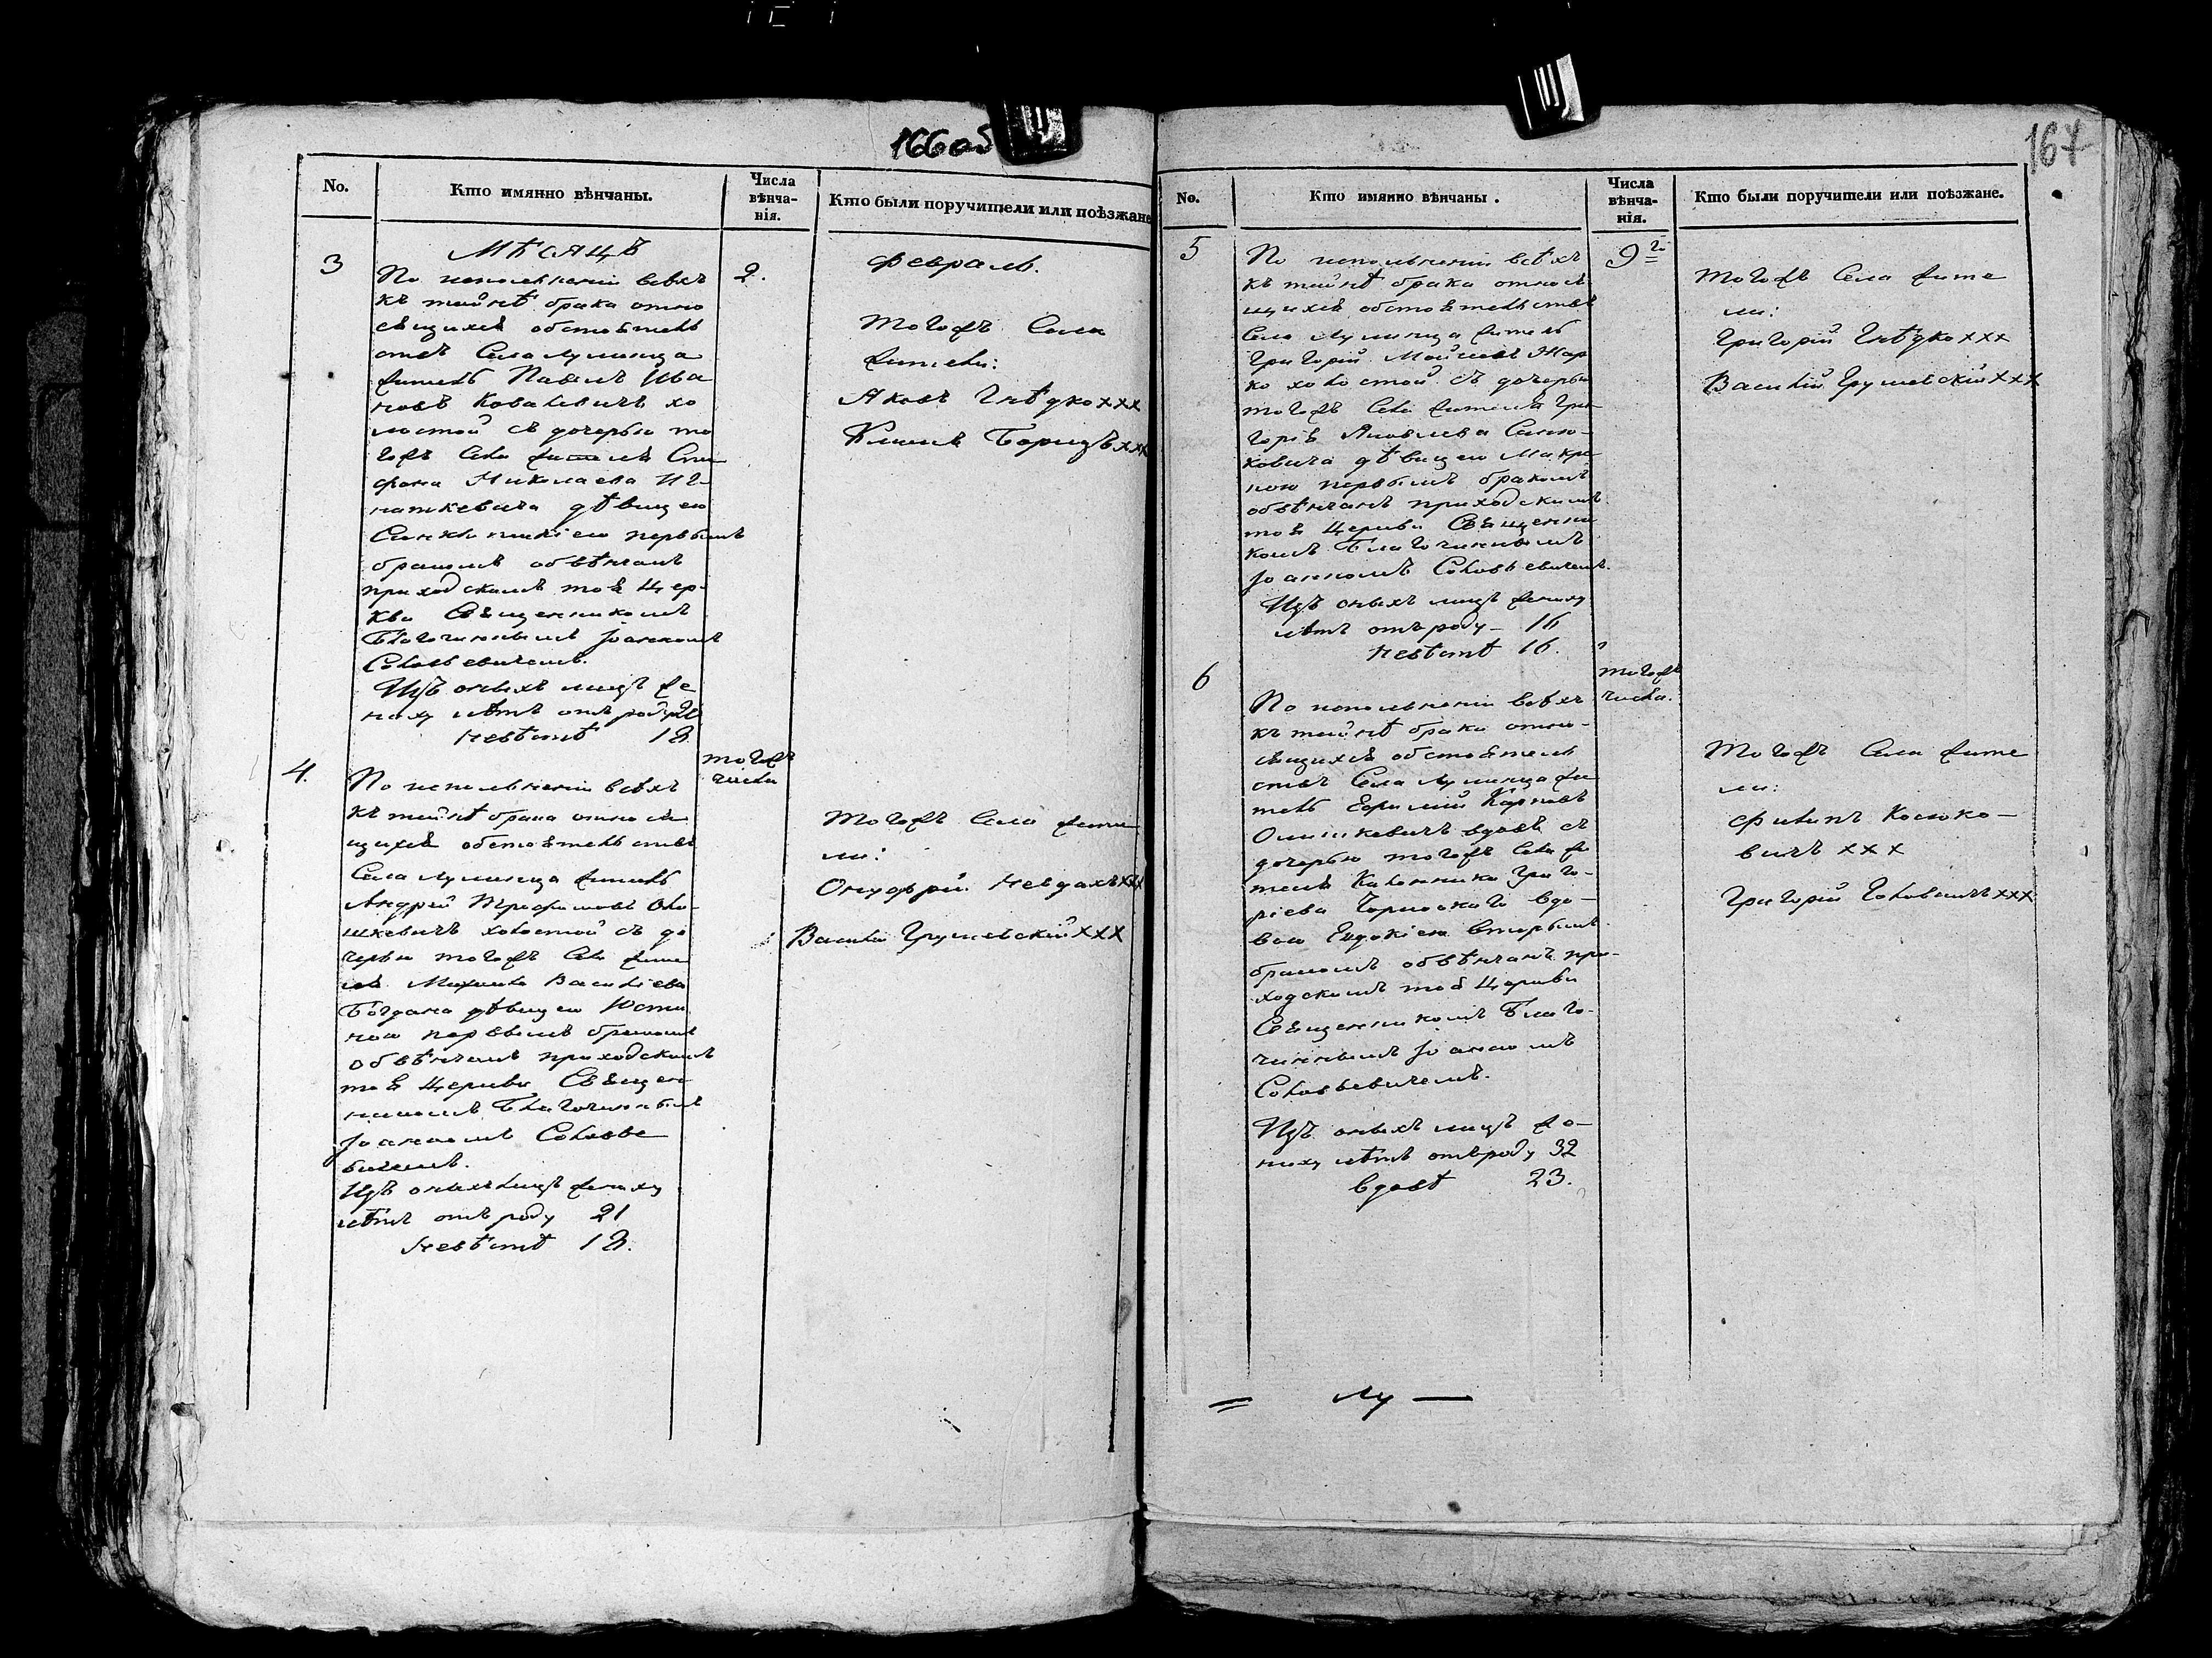 166 об
No.
Кто имянно вѣнчаны.
Числа
вѣнча-
нія.
Кто были поручители или поѣзжане
3
Мѣсяцъ
2.
Февраль.
По исполненіи всѣхъ
къ тайнѣ брака отно
сящихся обстоятель
ствъ Села Лунинца
житель Павелъ Ива
новъ Ковалевичъ хо
лостой съ дочерью то
гожъ Села жителя
Николаева Иг-
наткевича дѣвицею
первымъ
бракомъ обвѣнчанъ
приходскимъ тоя Цер-
кви Священникомъ
Благочиннымъ Іоанномъ
Соловьевичемъ.
Изъ оныхъ лицъ же
ниху лѣтъ отъ роду
Невѣстѣ 18.
Тогожъ Села
жители:
Яковъ Гнѣдко ххх
ххх
4.
тогожъ
числа
По исполненіи всѣхъ
къ тайнѣ брака относя
щихся обстоятельствъ
Села Лунинца житель
Андрей Трофимовъ Оло-
шкевичъ холостой съ до
черью тогожъ Села жите
ля Михаила Василіева
Богдана дѣвицею Юсти
ною первымъ бракомъ
обвѣнчанъ приходскимъ
тоя Церкви Священ
никомъ Благочиннымъ
Іоанномъ Соловье
вичемъ.
Изъ оныхъ лицъ жениху
лѣтъ отъ роду 21
Невѣстѣ 18.
Тогожъ Села жите
ли:
Онуфрій Невдахъ ххх
Василій Грушевскій ххх
167
No.
Кто имянно вѣнчаны.
Числа
вѣнча-
нія.
Кто были поручители или поѣзжане.
5
9го
По исполненіи всѣхъ
къ тайнѣ брака относя
щихся обстоятельствъ
Села Лунинца житель
Григорій Мойсеевъ Жар
ко холостой съ дочерью
тогожъ Села жителя Гри-
горія Яковлева
ковича дѣвицею Макри
ною первымъ бракомъ
обвѣнчанъ приходскимъ
тоя Церкви Священни
комъ Благочиннымъ
Іоанномъ Соловьевичемъ.
Изъ оныхъ лицъ жениху
лѣтъ отъ роду - 16
Невѣстѣ 16.
Тогожъ Села жите
ли:
Григорій Гнѣдко ххх
Василій Грушевскій ххх
6
тогожъ
числа.
По исполненіи всѣхъ
къ тайнѣ брака отно-
сящихся обстоятель
ствъ Села Лунинца жи
тель Ефимій Карповъ
вдовъ съ
дочерью тогожъ Села жи
теля Калинника Григо-
ріева Чорноокого вдо-
вою Евдокіею вторымъ
бракомъ обвѣнчанъ при-
ходскимъ тоя Церкви
Священникомъ Благо-
чиннымъ Іоанномъ
Соловьевичемъ.
Изъ оныхъ лицъ же-
ниху лѣтъ отъ роду 32
вдовѣ 23.
Тогожъ Села жите
ли:
Филипъ Косюко-
вичъ ххх
Григорій Головничъ ххх
= Лу —